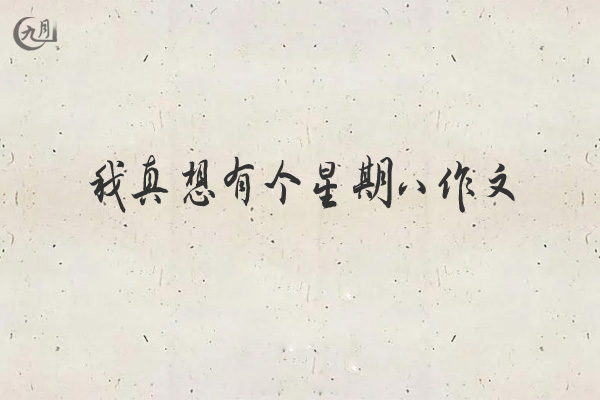 九月
我真想有个星期八作文